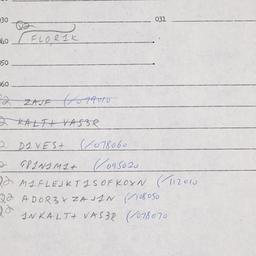 030 Q2 031
040 FLOR1K
050
060
Q2 ZAJF (/079010
2 KALT+ VAS3R
2 D1VES+ (/078060
2 GR1N1M1+ (/095020
Q2 M1FLEJKT1SOFKOVN (/112010
Q2 ADOR3V ZAJ1N (/108050
Q2 1NKALT+ VAS3R (/078070